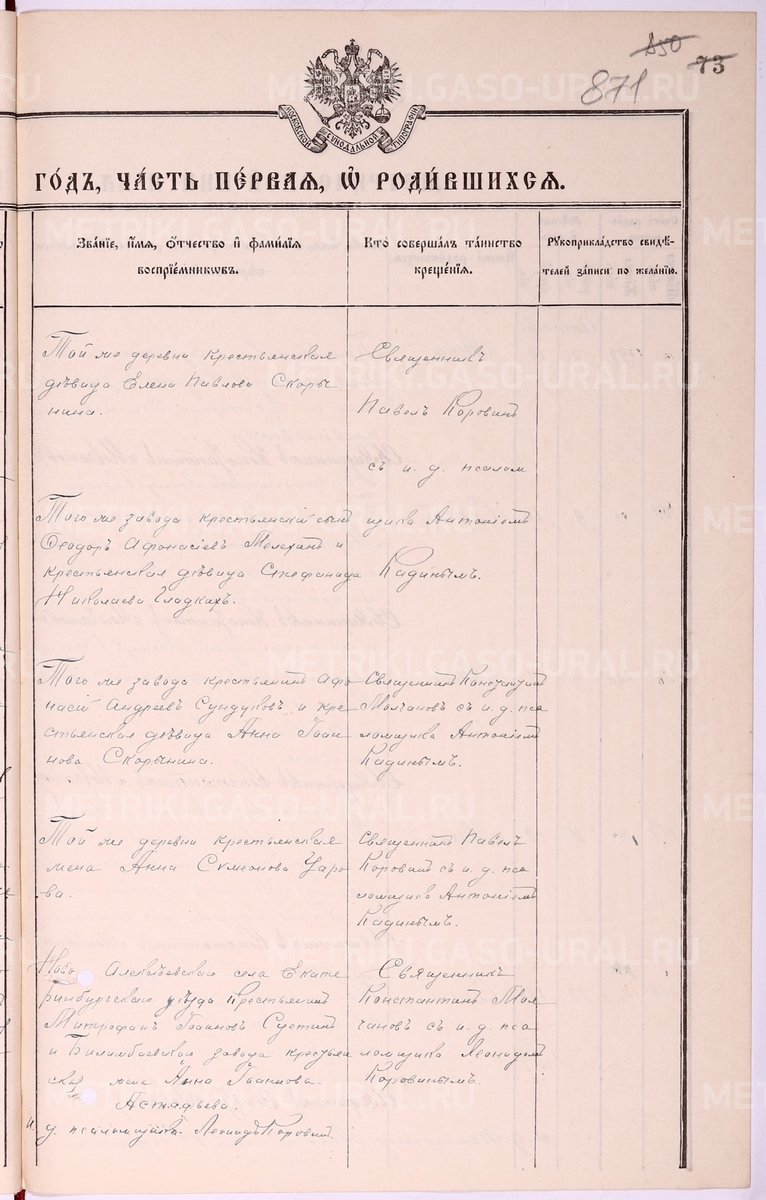 850
73
871
МОСКОВСКОЙ СѴНОДАЛЬНОЙ ТИПОГРАФІИ
ГОДЪ, ЧАСТЬ ПЕРВАЯ, Ѡ РОДИВШИХСЯ.
Званіе, имя, отчество и фамилія
воспріемниковъ.
Кто совершалъ таинство
крещенія.
Рукоприкладство свидѣ-
телей записи по желанію.
Той же деревни крестьянская
дѣвица Елена Павлова Скоры
нина.
Священникъ
Павелъ Коровинъ
съ и. д. псалом
щика Антоніемъ
Кадинымъ.
Того же завода крестьянскій сынъ
Ѳеодоръ Афонасіевъ Мелехинъ и
крестьянская дѣвица Стефанида
Николаева Гладкихъ.
Того же завода крестьянинъ Афо
насій Андреевъ Сундуковъ и кре
стьянская дѣвица Анна Іоан
нова Скорынина.
Священникъ Константинъ
Молчановъ съ и. д. пса
ломщика Антоніемъ
Кадинымъ.
Той же деревни крестьянская
жена Анна Сѵмеонова Царо
ва.
Священникъ Павелъ
Коровинъ съ и. д. пса
ломщика Антоніемъ
Кадинымъ.
Ново Алексѣевскаго села Екате
ринбургскаго уѣзда крестьянинъ
Митрофанъ Іоанновъ Суетинъ
и Билимбаевскаго завода крестьян
ская жена Анна Іоаннова
Астафьева.
и. д. псаломщика Леонидъ Коровинъ.
Священникъ
Константинъ Мол
чановъ съ и. д. пса
ломщика Леонидомъ
Коровинымъ.
METRIKI.GASO-URAL.RU